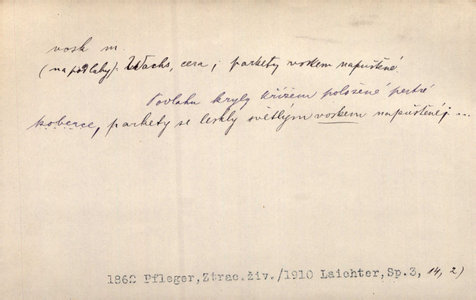 vosk m.
(na podlahy). Wachs, cera; parkety voskem napuštěné
Podlahu kryly křížem položené pestré
koberce, parkety se leskly světlým voskem napuštěné; ...
1862 Pfleger,Ztrac.živ./1910 Laichter,Sp.3, 14, 2)